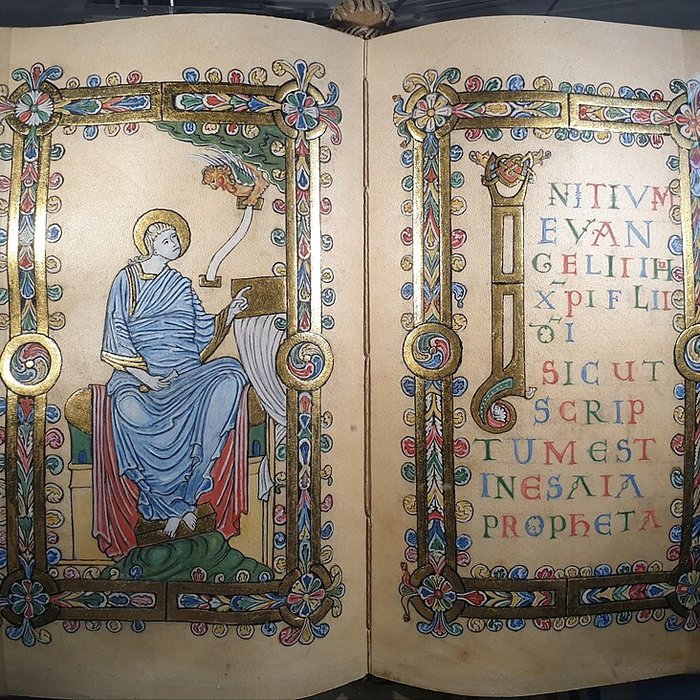 INITIVM
EVAN
GELII IHV
XPI FILII
DI
SICUT
SCRIP
TUM EST
IN ESAIA
PROPHETA